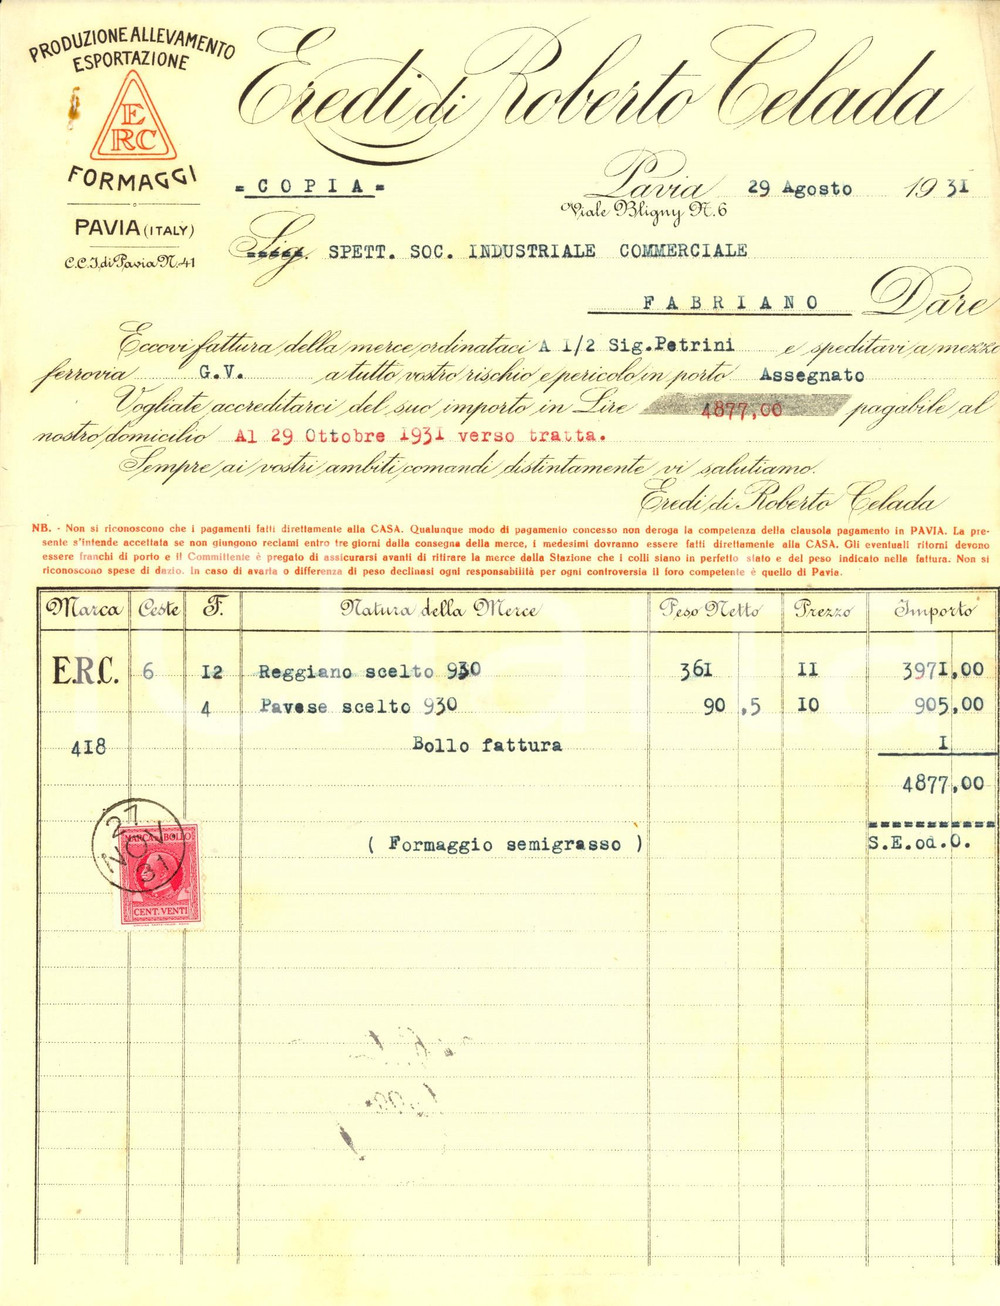 PRODUZIONE ALLEVAMENTO
ESPORTAZIONE
E
RC
FORMAGGI
PAVIA (ITALY)
C.C.I. di Pavia N. 41
Eredi di Roberto Celada
= C O P I A =
Pavia 29 Agosto 1931
Viale Bligny N. 6
Sig. SPETT. SOC. INDUSTRIALE COMMERCIALE
F A B R I A N O Dare
Eccovi fattura della merce ordinataci A 1/2 Sig.Petrini e speditavi a mezzo
ferrovia G.V. a tutto vostro rischio e pericolo in porto Assegnato
Vogliate accreditarci del suo importo in Lire 4877,00 pagabile al
nostro domicilio Al 29 Ottobre 1931 verso tratta.
Sempre ai vostri ambiti comandi distintamente vi salutiamo.
Eredi di Roberto Celada
NB. - Non si riconoscono che i pagamenti fatti direttamente alla CASA. Qualunque modo di pagamento concesso non deroga la competenza della clausola pagamento in PAVIA. La pre-
sente s'intende accettata se non giungono reclami entro tre giorni dalla consegna della merce, i medesimi dovranno essere fatti direttamente alla CASA. Gli eventuali ritorni devono
essere franchi di porto e il Committente è pregato di assicurarsi avanti di ritirare la merce dalla Stazione che i colli siano in perfetto stato e del peso indicato nelle fattura. Non si
riconoscono spese di dazio. In caso di avaria o differenza di peso declinasi ogni responsabilità per ogni controversia il foro competente è quello di Pavia.
Marca Ceste F. Natura della Merce Peso Netto Prezzo Importo
E.R.C. 6 12 Reggiano scelto 930 361 11 3971,00
4 Pavese scelto 930 90 ,5 10 905,00
418 Bollo fattura 1
4877,00
( Formaggio semigrasso ) S.E.od.O.
27
NOV
31
MARCA DA BOLLO
CENT. VENTI